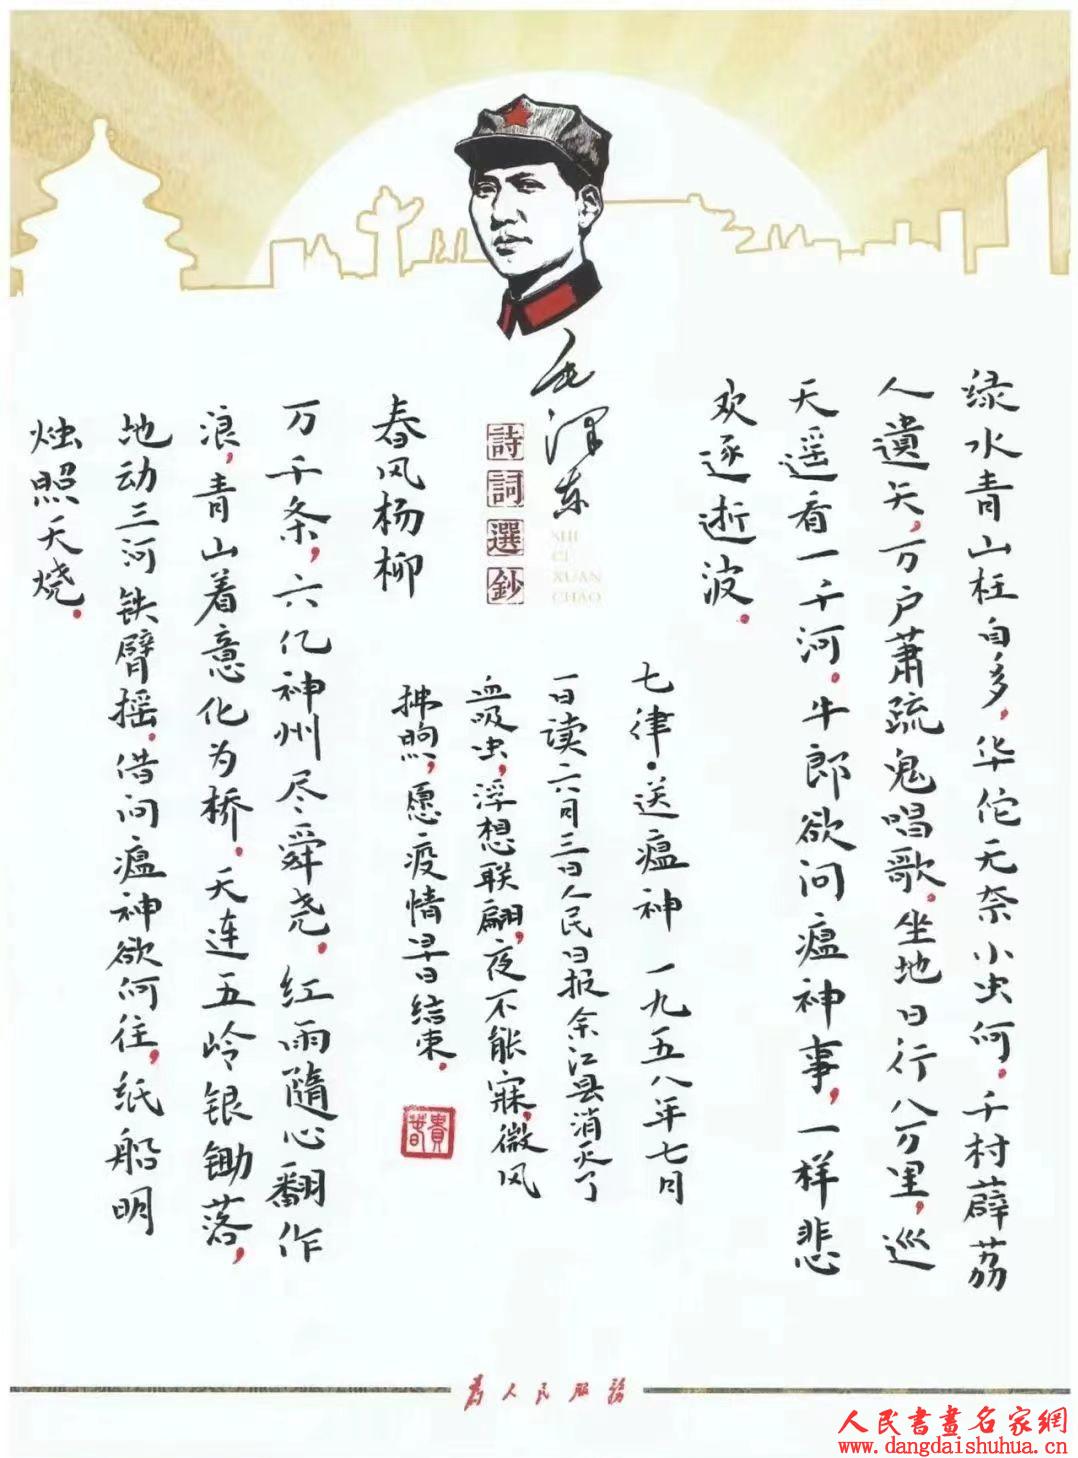 毛泽东
詩詞選鈔
SHI
CI
XUAN
CHAO
绿水青山枉自多，华佗无奈小虫何。千村薜荔
人遗矢，万户萧疏鬼唱歌。坐地日行八万里，巡
天遥看一千河。牛郎欲问瘟神事，一样悲
欢逐逝波。
七律·送瘟神 一九五八年七月
一日读六月三日人民日报余江县消灭了
血吸虫，浮想联翩，夜不能寐，微风
拂煦，愿疫情早日结束。
春风杨柳
万千条，六亿神州尽舜尧。红雨随心翻作
浪，青山着意化为桥。天连五岭银锄落，
地动三河铁臂摇。借问瘟神欲何往，纸船明
烛照天烧。
为人民服务
人民書畫名家網
www.dangdaishuhua.cn